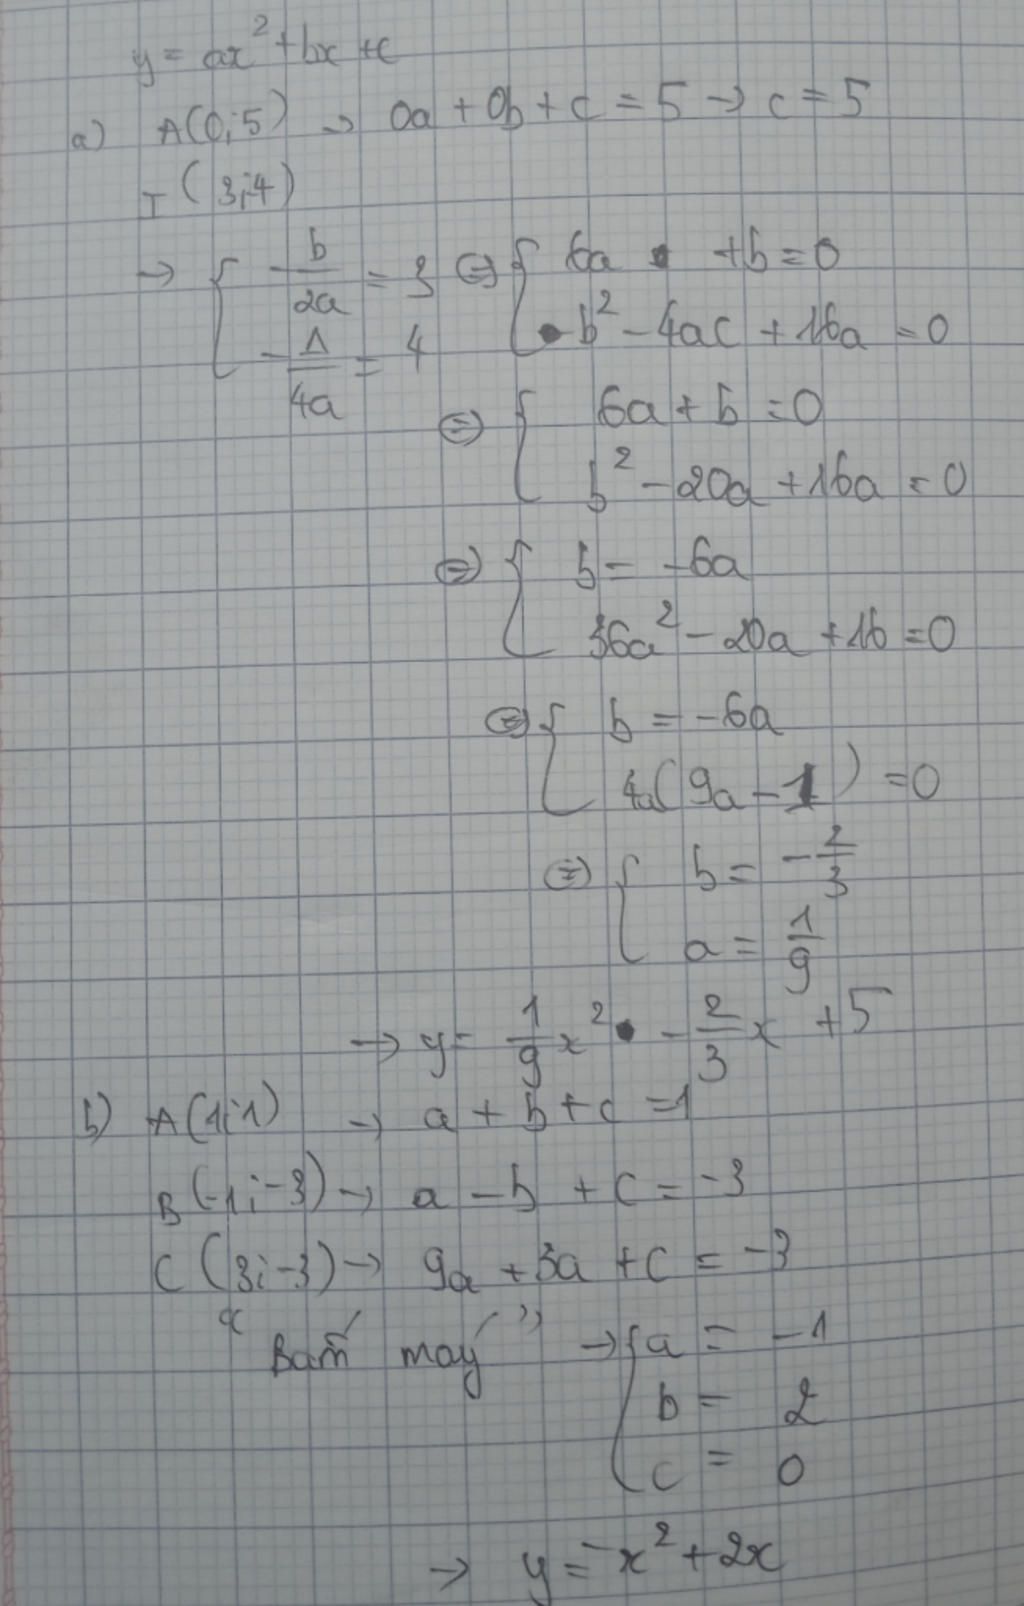 y = ax² + bx + c
a) A(0;5) → 0a + 0b + c = 5 → c = 5
I(3;4)
→ { -b/2a = 3 ⇔ { 6a + b = 0
-Δ/4a = 4 b² - 4ac + 16a = 0
⇔ { 6a + b = 0
b² - 20a + 16a = 0
⇔ { b = -6a
36a² - 20a + 16 = 0
⇔ { b = -6a
4a(9a - 1) = 0
⇔ { b = -2/3
a = 1/9
→ y = 1/9 x² - 2/3 x + 5
b) A(1;1) → a + b + c = 1
B(-1;-3) → a - b + c = -3
C(3;-3) → 9a + 3a + c = -3
"Bấm máy" → { a = -1
b = 2
c = 0
→ y = -x² + 2x